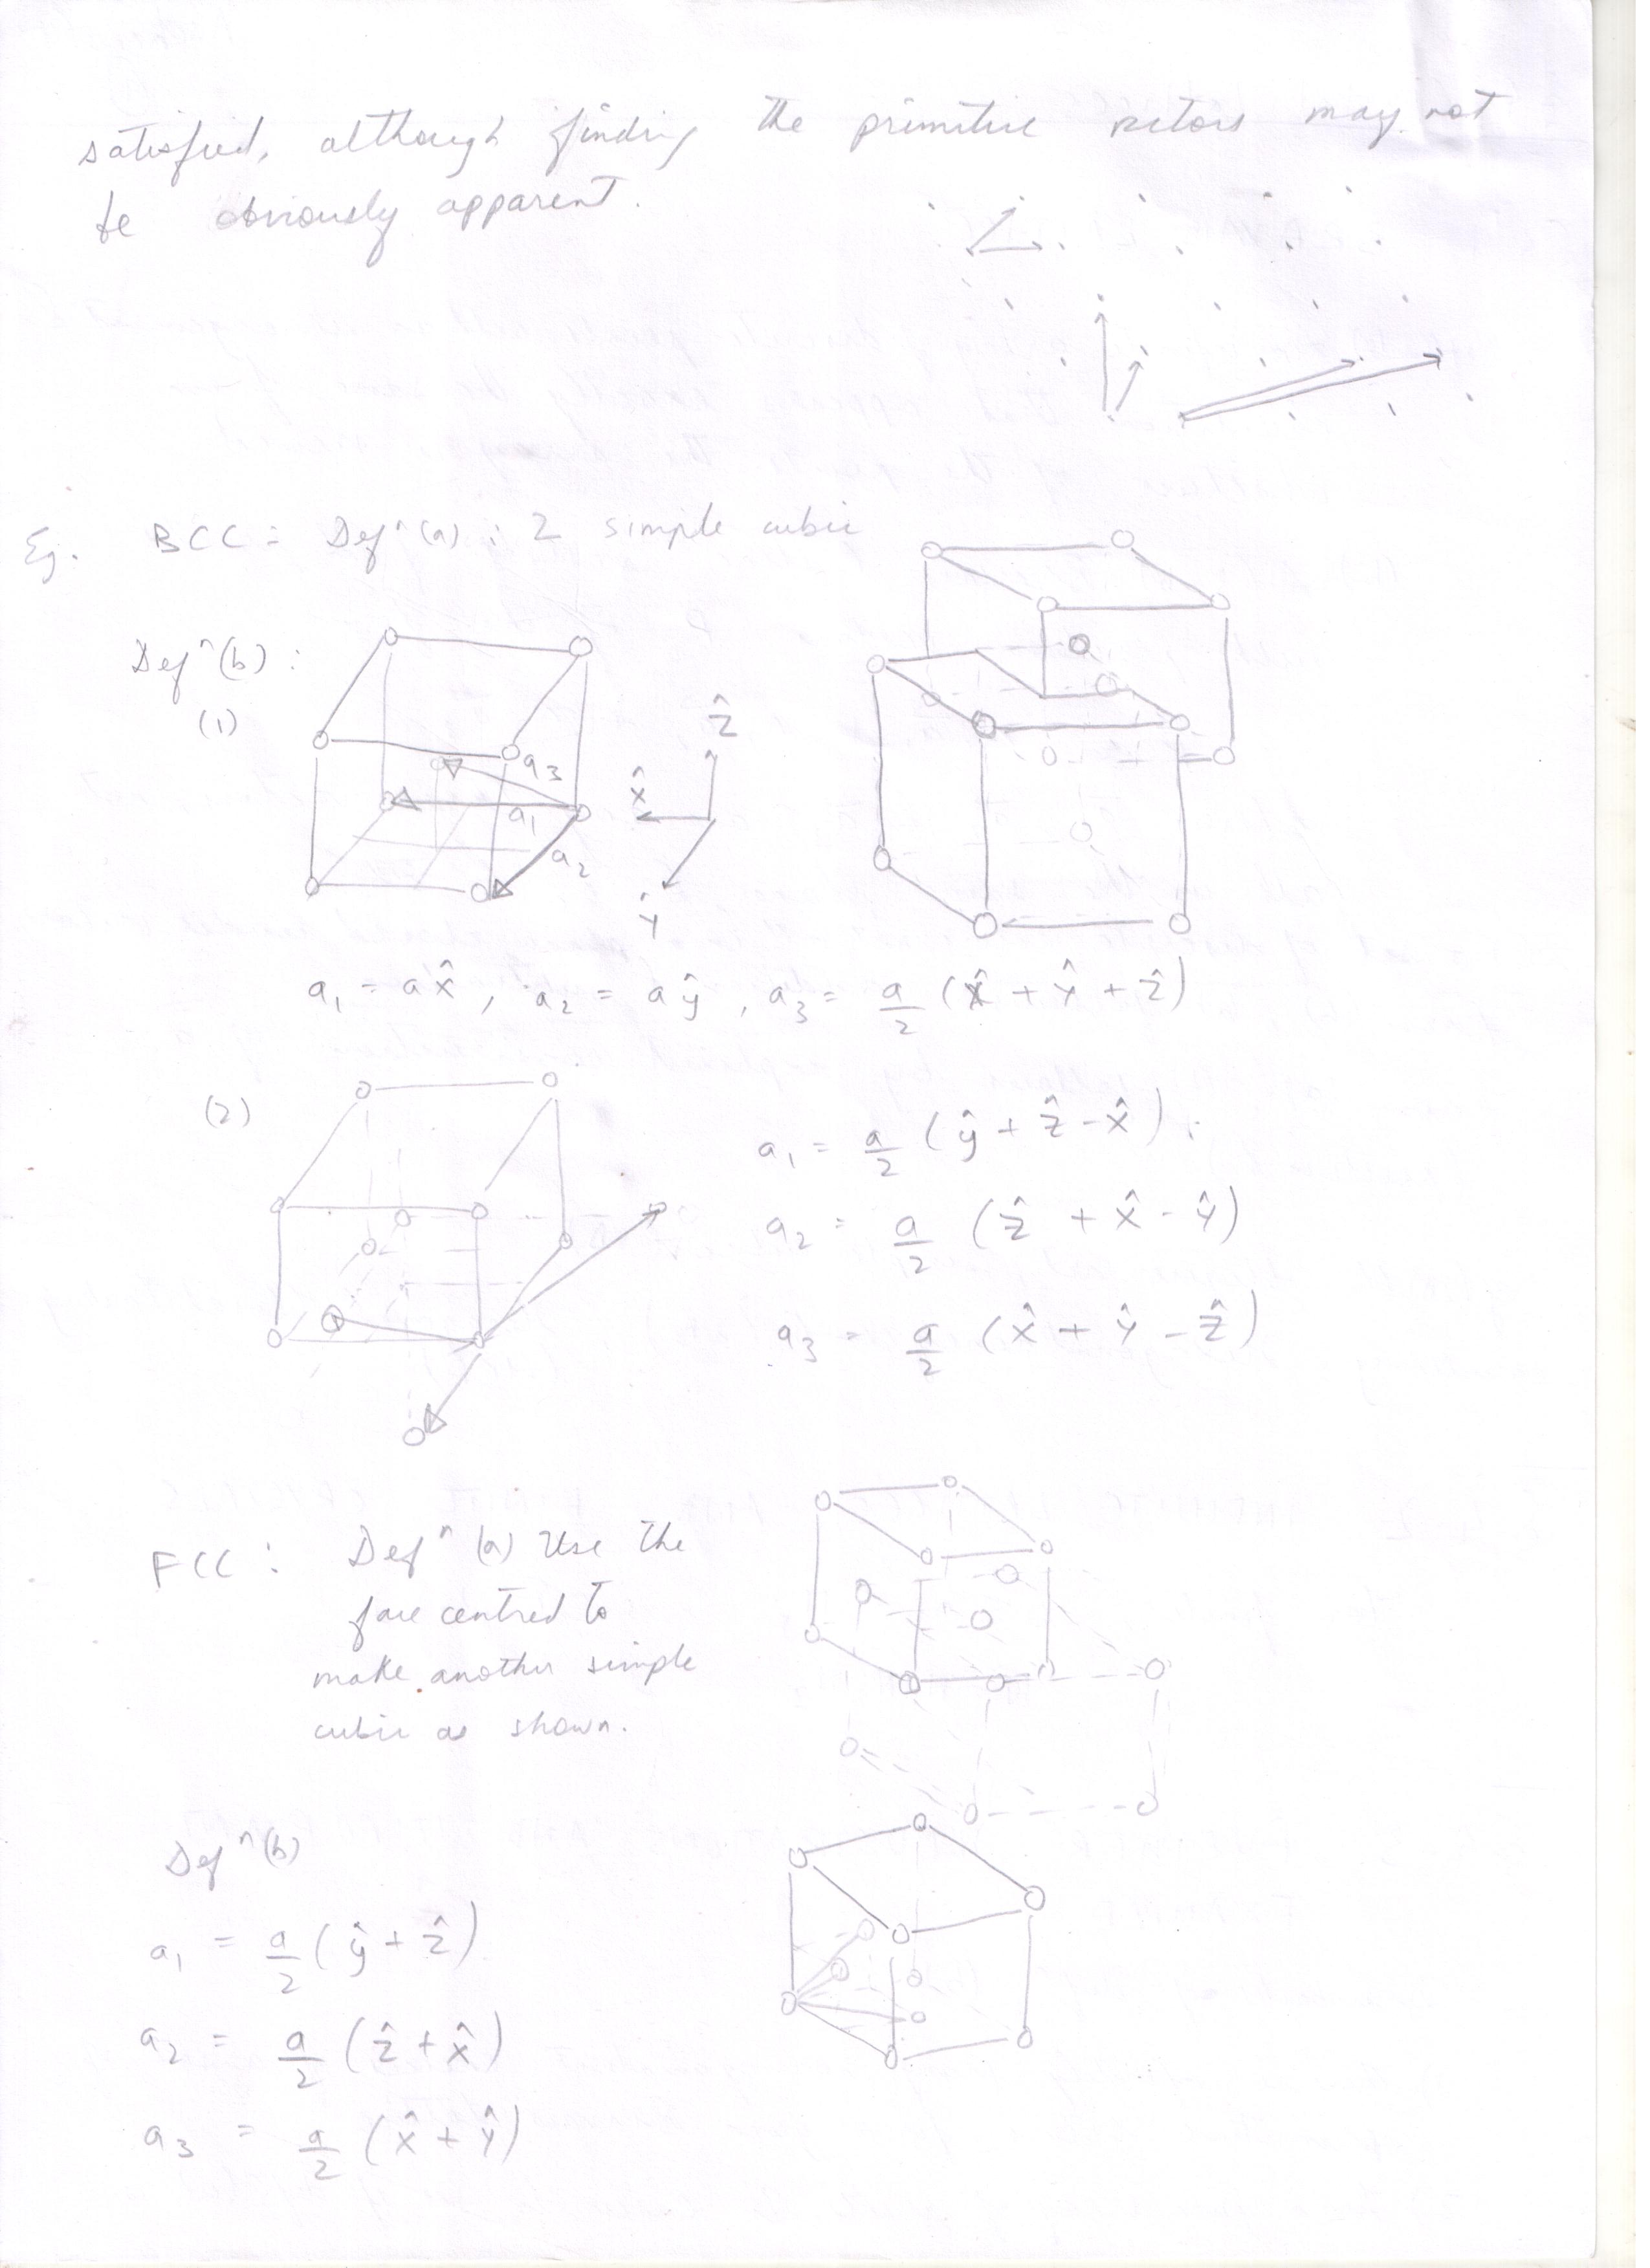 satisfied, although finding the primitive vectors may not
be obviously apparent.
Eg. BCC : Defⁿ (a) : 2 simple cubic
Defⁿ (b) :
(1)
a₃
a₁
a₂
ẑ
x̂
ŷ
a₁ = a x̂ , a₂ = a ŷ , a₃ = a/2 (x̂ + ŷ + ẑ)
(2)
a₁ = a/2 (ŷ + ẑ - x̂) ;
a₂ = a/2 (ẑ + x̂ - ŷ)
a₃ = a/2 (x̂ + ŷ - ẑ)
FCC : Defⁿ (a) Use the
face centred to
make another simple
cubic as shown.
Defⁿ (b)
a₁ = a/2 (ŷ + ẑ)
a₂ = a/2 (ẑ + x̂)
a₃ = a/2 (x̂ + ŷ)